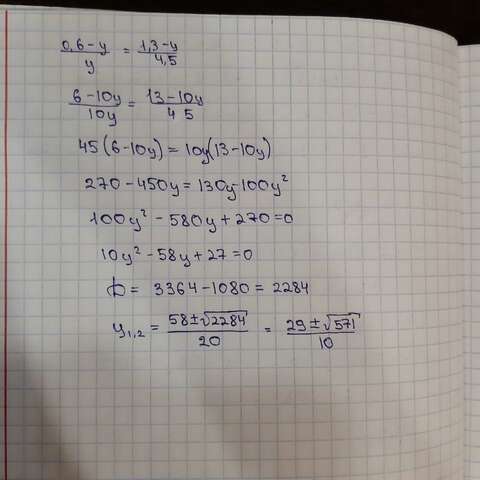 (0,6-y)/y = (1,3-y)/4,5
(6-10y)/10y = (13-10y)/45
45(6-10y)=10y(13-10y)
270-450y=130y-100y²
100y²-580y+270=0
10y²-58y+27=0
D= 3364-1080=2284
y₁,₂ = (58±√2284)/20 = (29±√571)/10